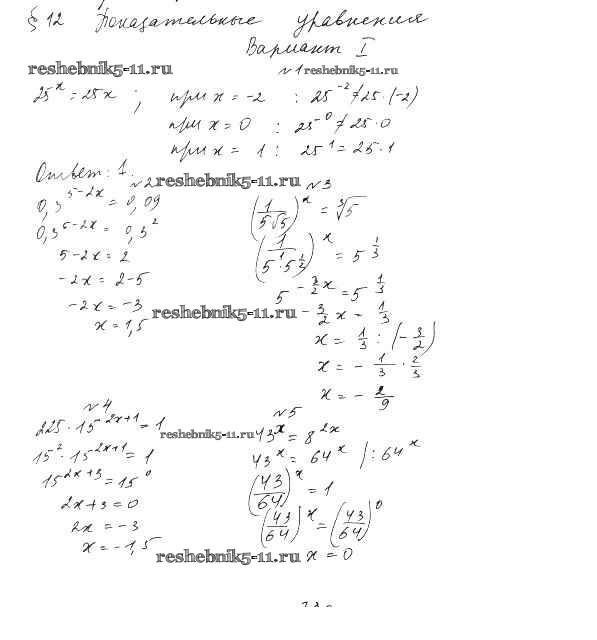 § 12 Показательные уравнения
Вариант I
reshebnik5-11.ru
№1 reshebnik5-11.ru
25^x = 25x ; при x = -2 : 25^-2 ≠ 25·(-2)
при x = 0 : 25^-0 ≠ 25·0
при x = 1 : 25^1 = 25·1
Ответ: 1.
№2 reshebnik5-11.ru
0,3^5-2x = 0,09
0,3^5-2x = 0,3^2
5-2x = 2
-2x = 2-5
-2x = -3
x = 1,5
№3
(1/5√5)^x = ∛5
(1/5^1·5^1/2)^x = 5^1/3
5^-3/2x = 5^1/3
reshebnik5-11.ru
-3/2 x - 1/3
x = 1/3 : (-3/2)
x = - 1/3 · 2/3
x = - 2/9
№4
225·15^2x+1 = 1
15^2·15^2x+1 = 1
15^2x+3 = 15^0
2x+3 = 0
2x = -3
x = -1,5
№5
reshebnik5-11.ru
43^x = 8^2x
43^x = 64^x /: 64^x
(43/64)^x = 1
(43/64)^x = (43/64)^0
reshebnik5-11.ru
x = 0